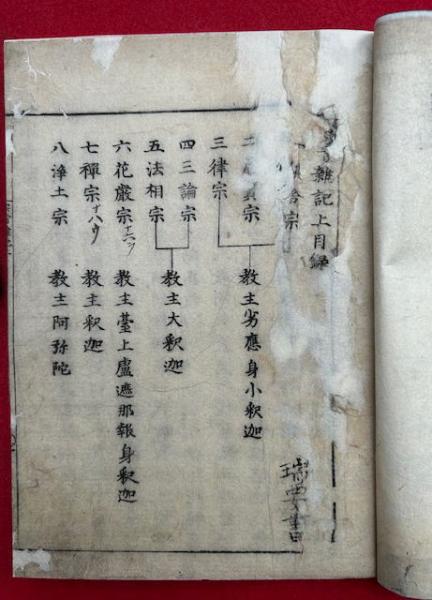 雜記上目録
舎宗
二 宗
三律宗
教主劣應身小釈迦
四三論宗
五法相宗
教主大釈迦
六花嚴宗 教主臺上盧遮那報身釈迦
七禪宗 教主釈迦
八淨土宗 教主阿弥陀
瑞要書